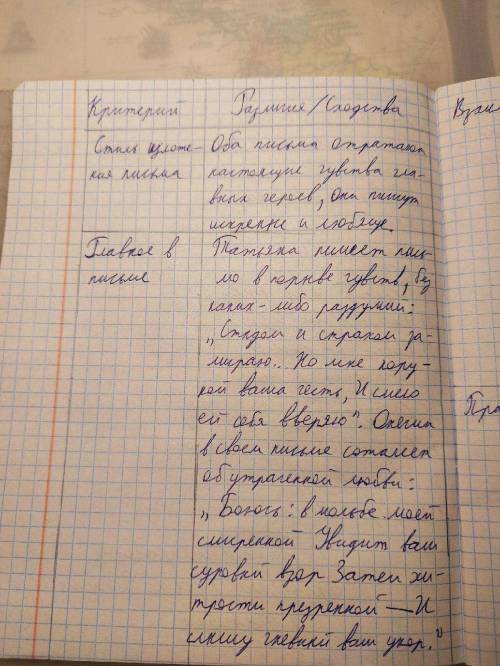 Критерий Различия/Сходства
Стиль изложе- Оба письма отражают
ния письма настоящие чувства гла-
вных героев, они пишут
искренне и любяще.
Главное в Татьяна пишет пись-
письме мо в порыве чувств, без
каких-либо раздумий:
„Стыдом и страхом за-
мираю.. Но мне пору-
кой ваша честь, И смело
ей себя вверяю". Онегин
в своем письме сожалеет
об утраченной любви:
„Боюсь: в мольбе моей
смиренной Увидит ваш
суровый взор Затеи хи-
трости презренной — И
слышу гневный ваш укор."
Взаи
Пра